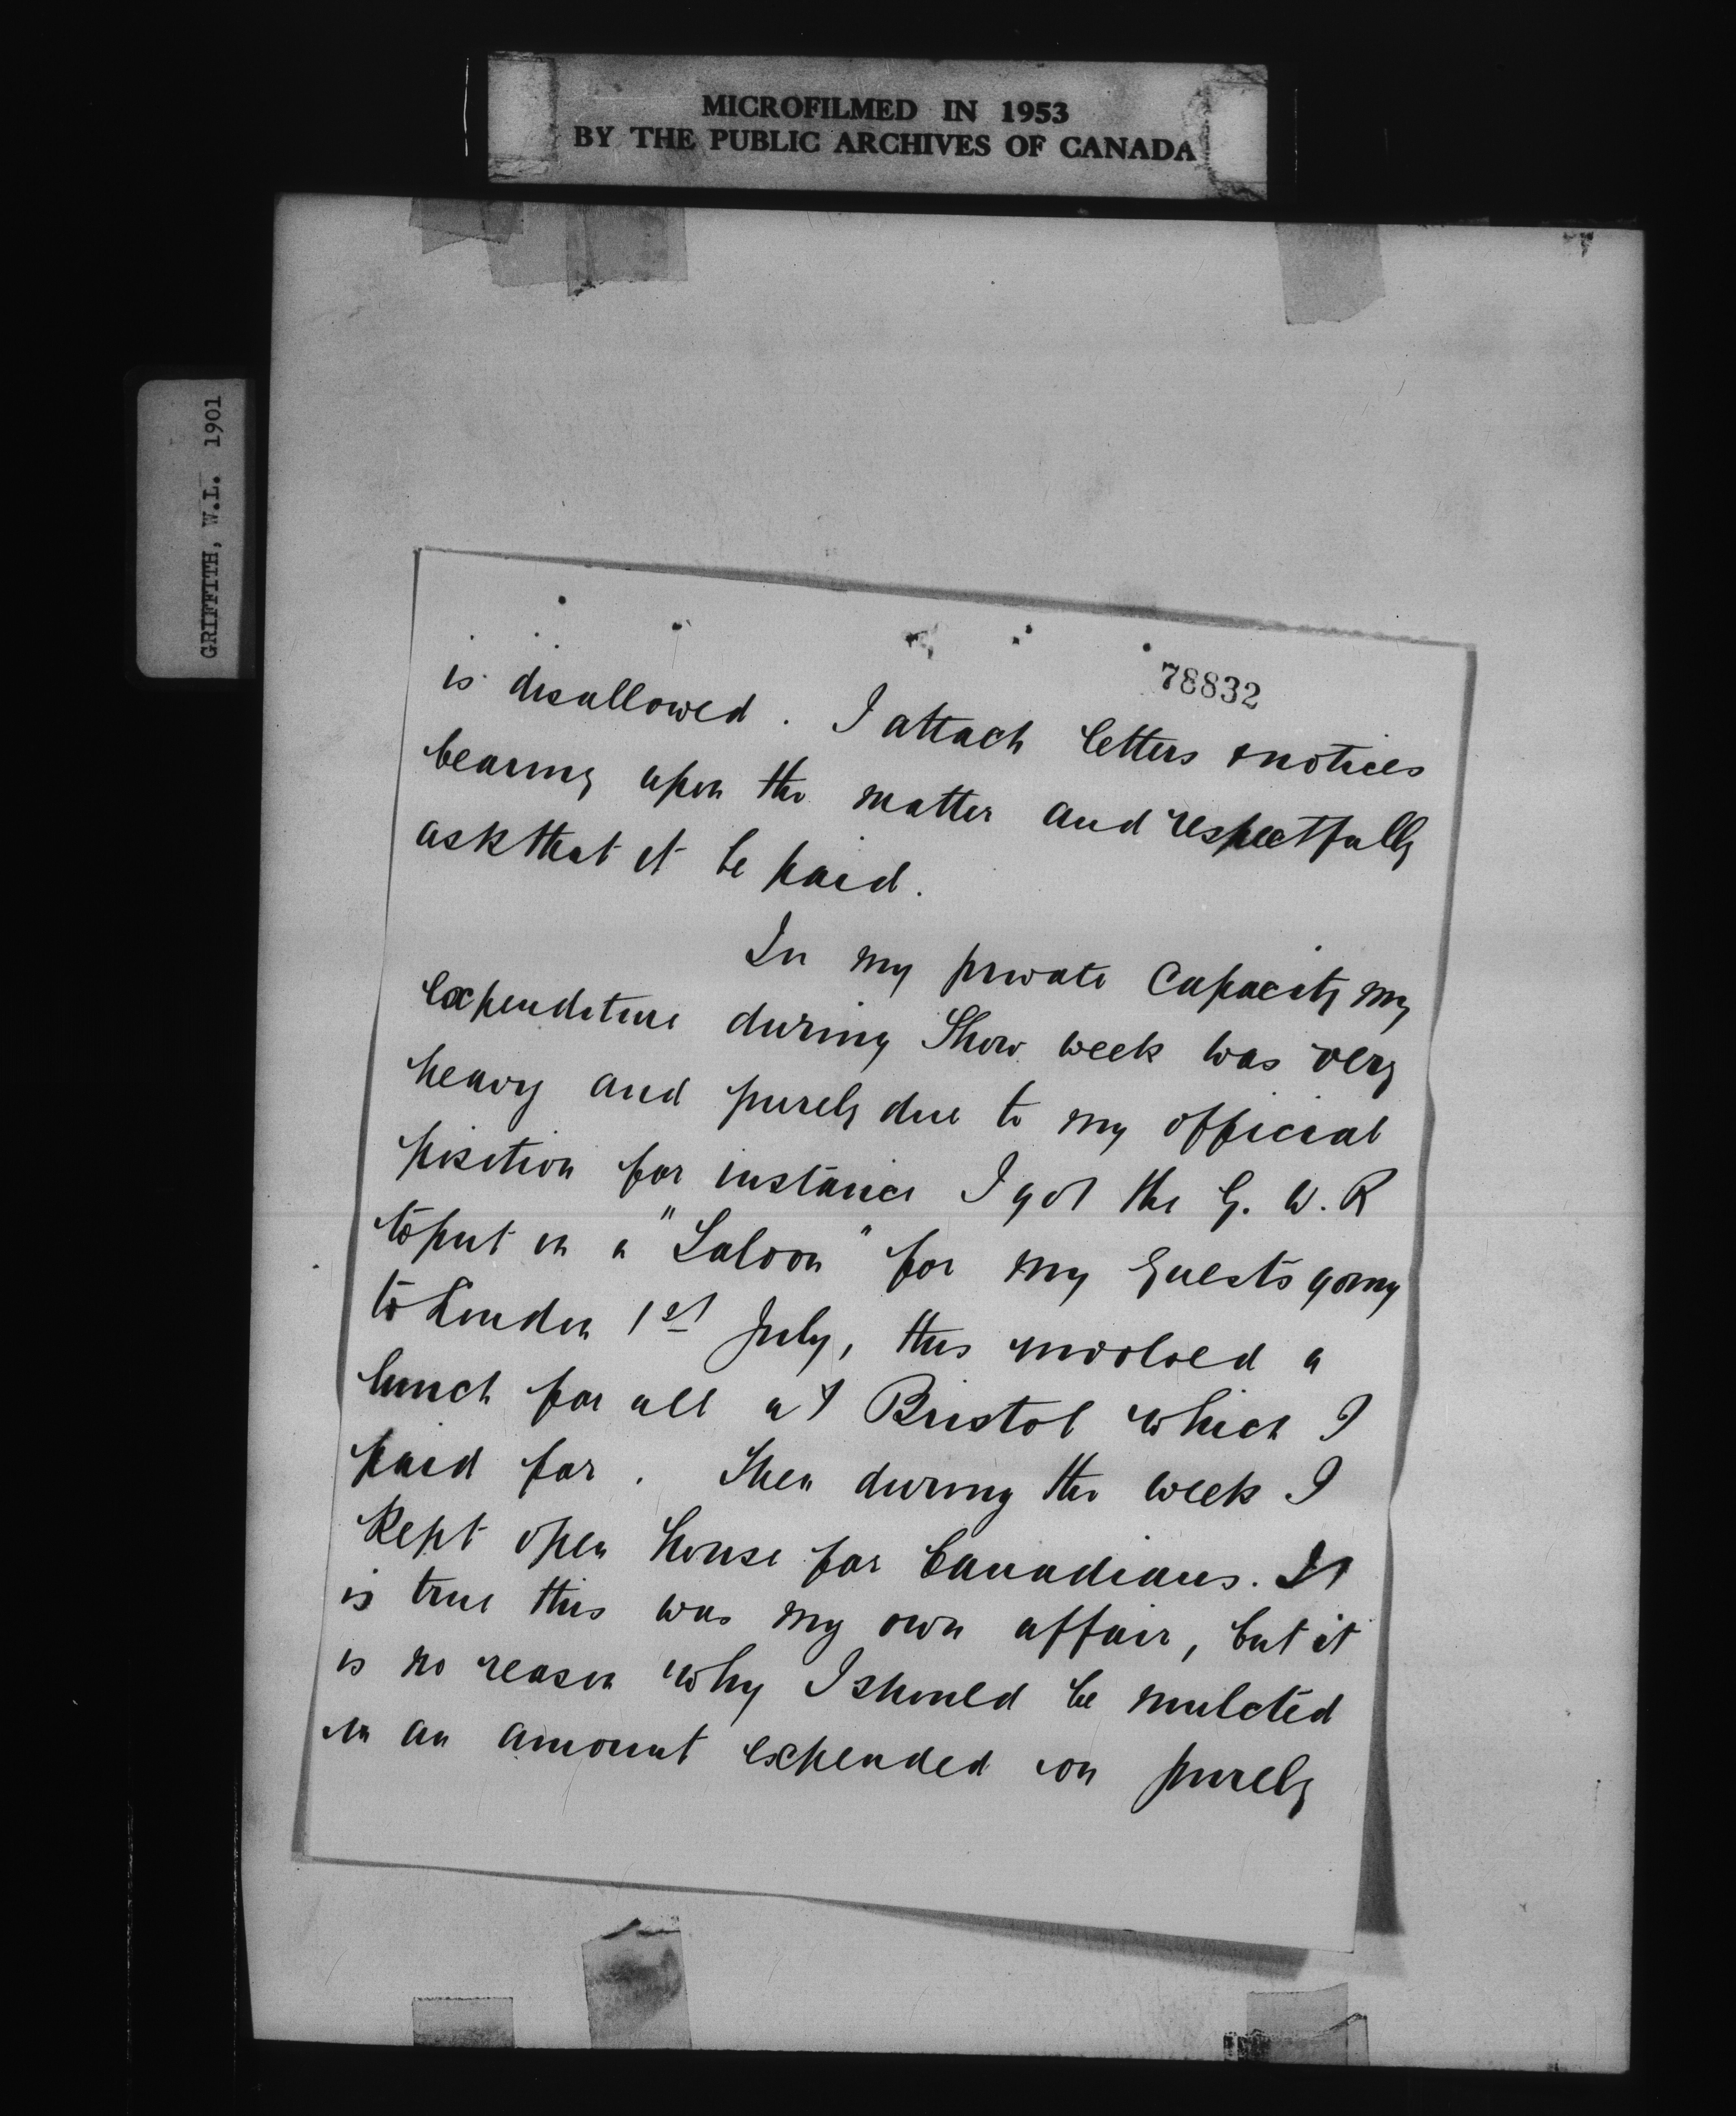 MICROFILMED IN 1953
BY THE PUBLIC ARCHIVES OF CANADA
GRIFFITH, W.L. 1901
78832
is disallowed. I attach letters & notices
bearing upon the matter and respectfully
ask that it be paid.
In my private Capacity my
expenditure during Show week was very
heavy and purely due to my official
position for instance I got the G. W. R
to put on a "Saloon" for my guests going
to London 1st July, this involved a
lunch for all at Bristol which I
paid for. Then during the week I
kept open house for Canadians. It
is true this was my own affair, but it
is no reason why I should be mulcted
in an amount expended on purely